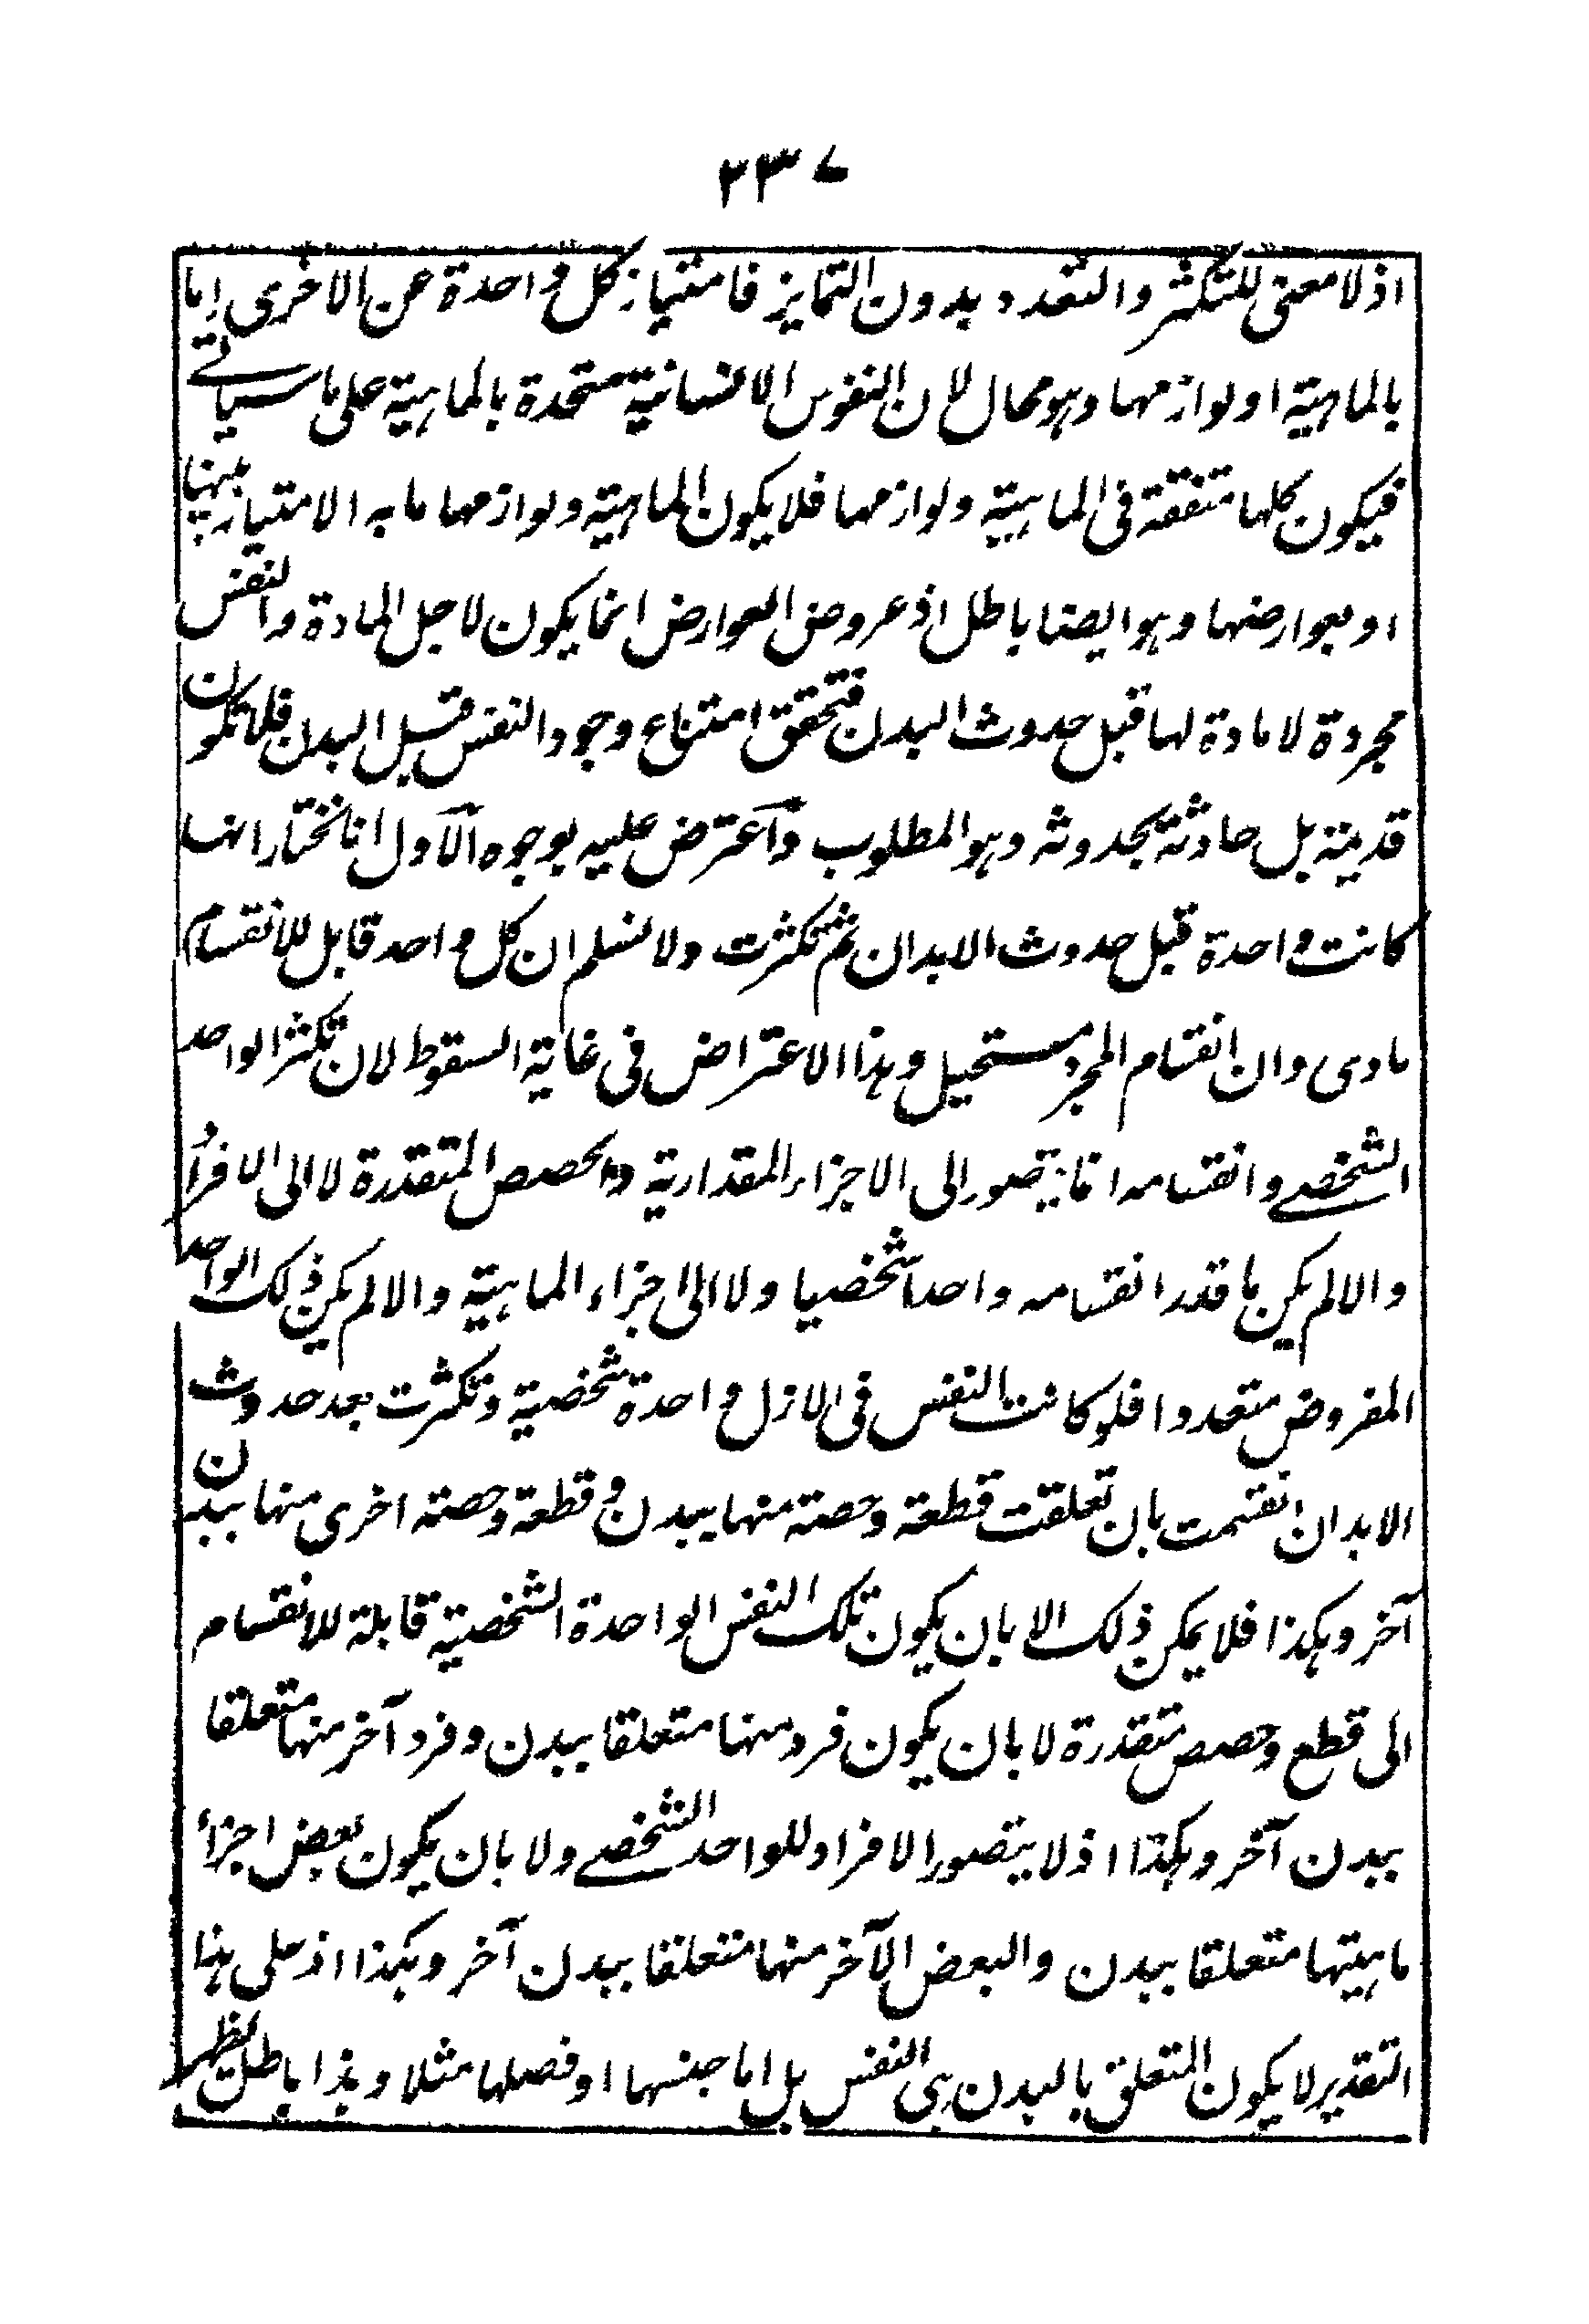 ٢٣٧
اذ لا معنى للتكثر والتعدد بدون التمايز فامتياز كل واحدة عن الاخرى اما
بالماهية او لوازمها وهو محال لان النفوس الانسانية متحدة بالماهية على ما سياتى
فيكون كلها متفقة فى الماهية ولوازمها فلا يكون الماهية ولوازمها ما به الامتياز بينها
او بعوارضها وهو ايضا باطل اذ عروض العوارض انما يكون لاجل المادة والنفس
مجردة لا مادة لها قبل حدوث البدن فتحقق امتناع وجود النفس قبل البدن فلا تكون
قديمة بل حادثة بحدوثه وهو المطلوب وآعترض عليه بوجوه الآول انا نختار انها
كانت واحدة قبل حدوث الابدان ثم تكثرت ولا نسلم ان كل واحد قابل للانقسام
مادى وان انقسام المجرد مستحيل وهذا الاعتراض فى غاية السقوط لان تكثر الواحد
الشخصى وانقسامه انما يتصور الى الاجزاء المقدارية والحصص المتقدرة لا الى الافراد
والا لم يكن ما قدر انقسامه واحدا شخصيا ولا الى اجزاء الماهية والا لم يكن ذلك الواحد
المفروض متعددا فلو كانت النفس فى الازل واحدة شخصية وتكثرت بعد حدوث
الابدان انقسمت بان تعلقت قطعة وحصته منها ببدن وقطعة وحصته اخرى منها ببدن
آخر وهكذا فلا يمكن ذلك الا بان يكون تلك النفس الواحدة الشخصية قابلة للانقسام
الى قطع وحصص متقدرة لا بان يكون فرد منها متعلقا ببدن وفرد آخر منها متعلقا
ببدن آخر وهكذا اذ لا يتصور الافراد للواحد الشخصى ولا بان يكون بعض اجزاء
ماهيتها متعلقا ببدن والبعض الآخر منها متعلقا ببدن آخر وهكذا اذ على هذا
التقدير لا يكون المتعلق بالبدن هى النفس بل اما جنسها او فصلها مثلا وهذا باطل